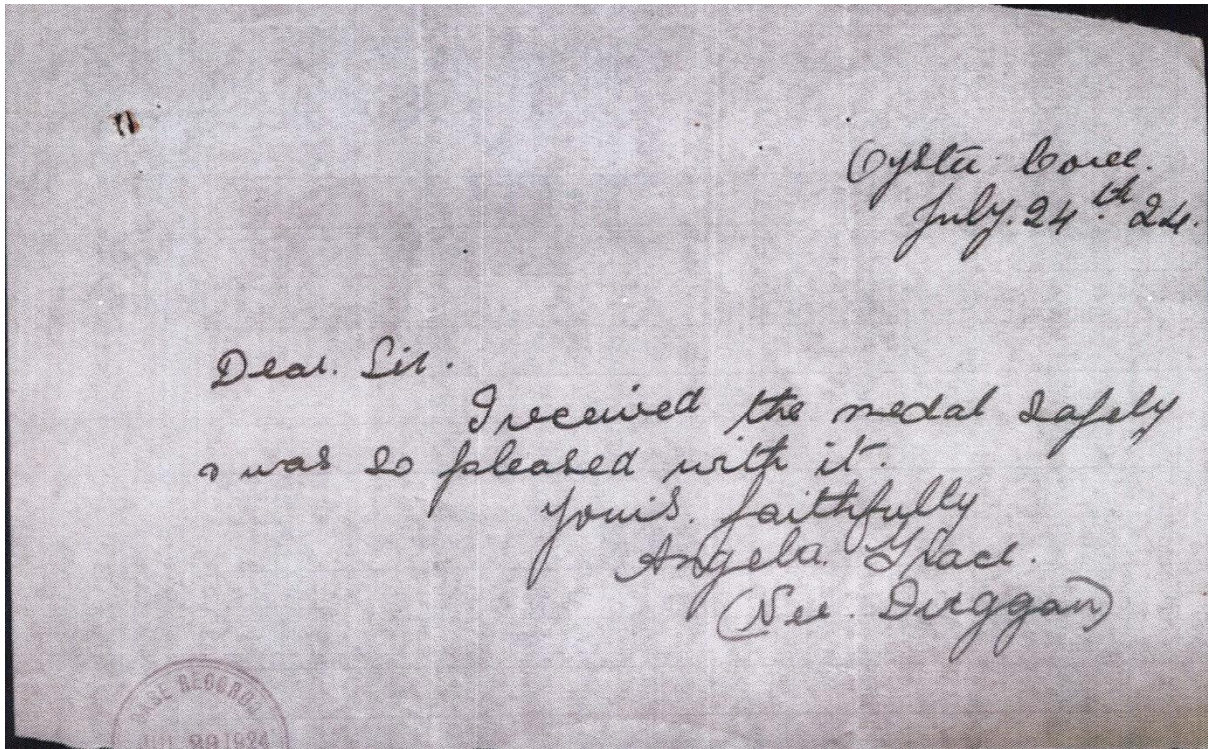 Oyster Cove.
July. 24th 24.
Dear. Sir.
I received the medal safely
& was so pleased with it.
Yours. faithfully
Angela. Grace.
(Nee. Duggan)
BASE RECORDS
JUL 29 1924